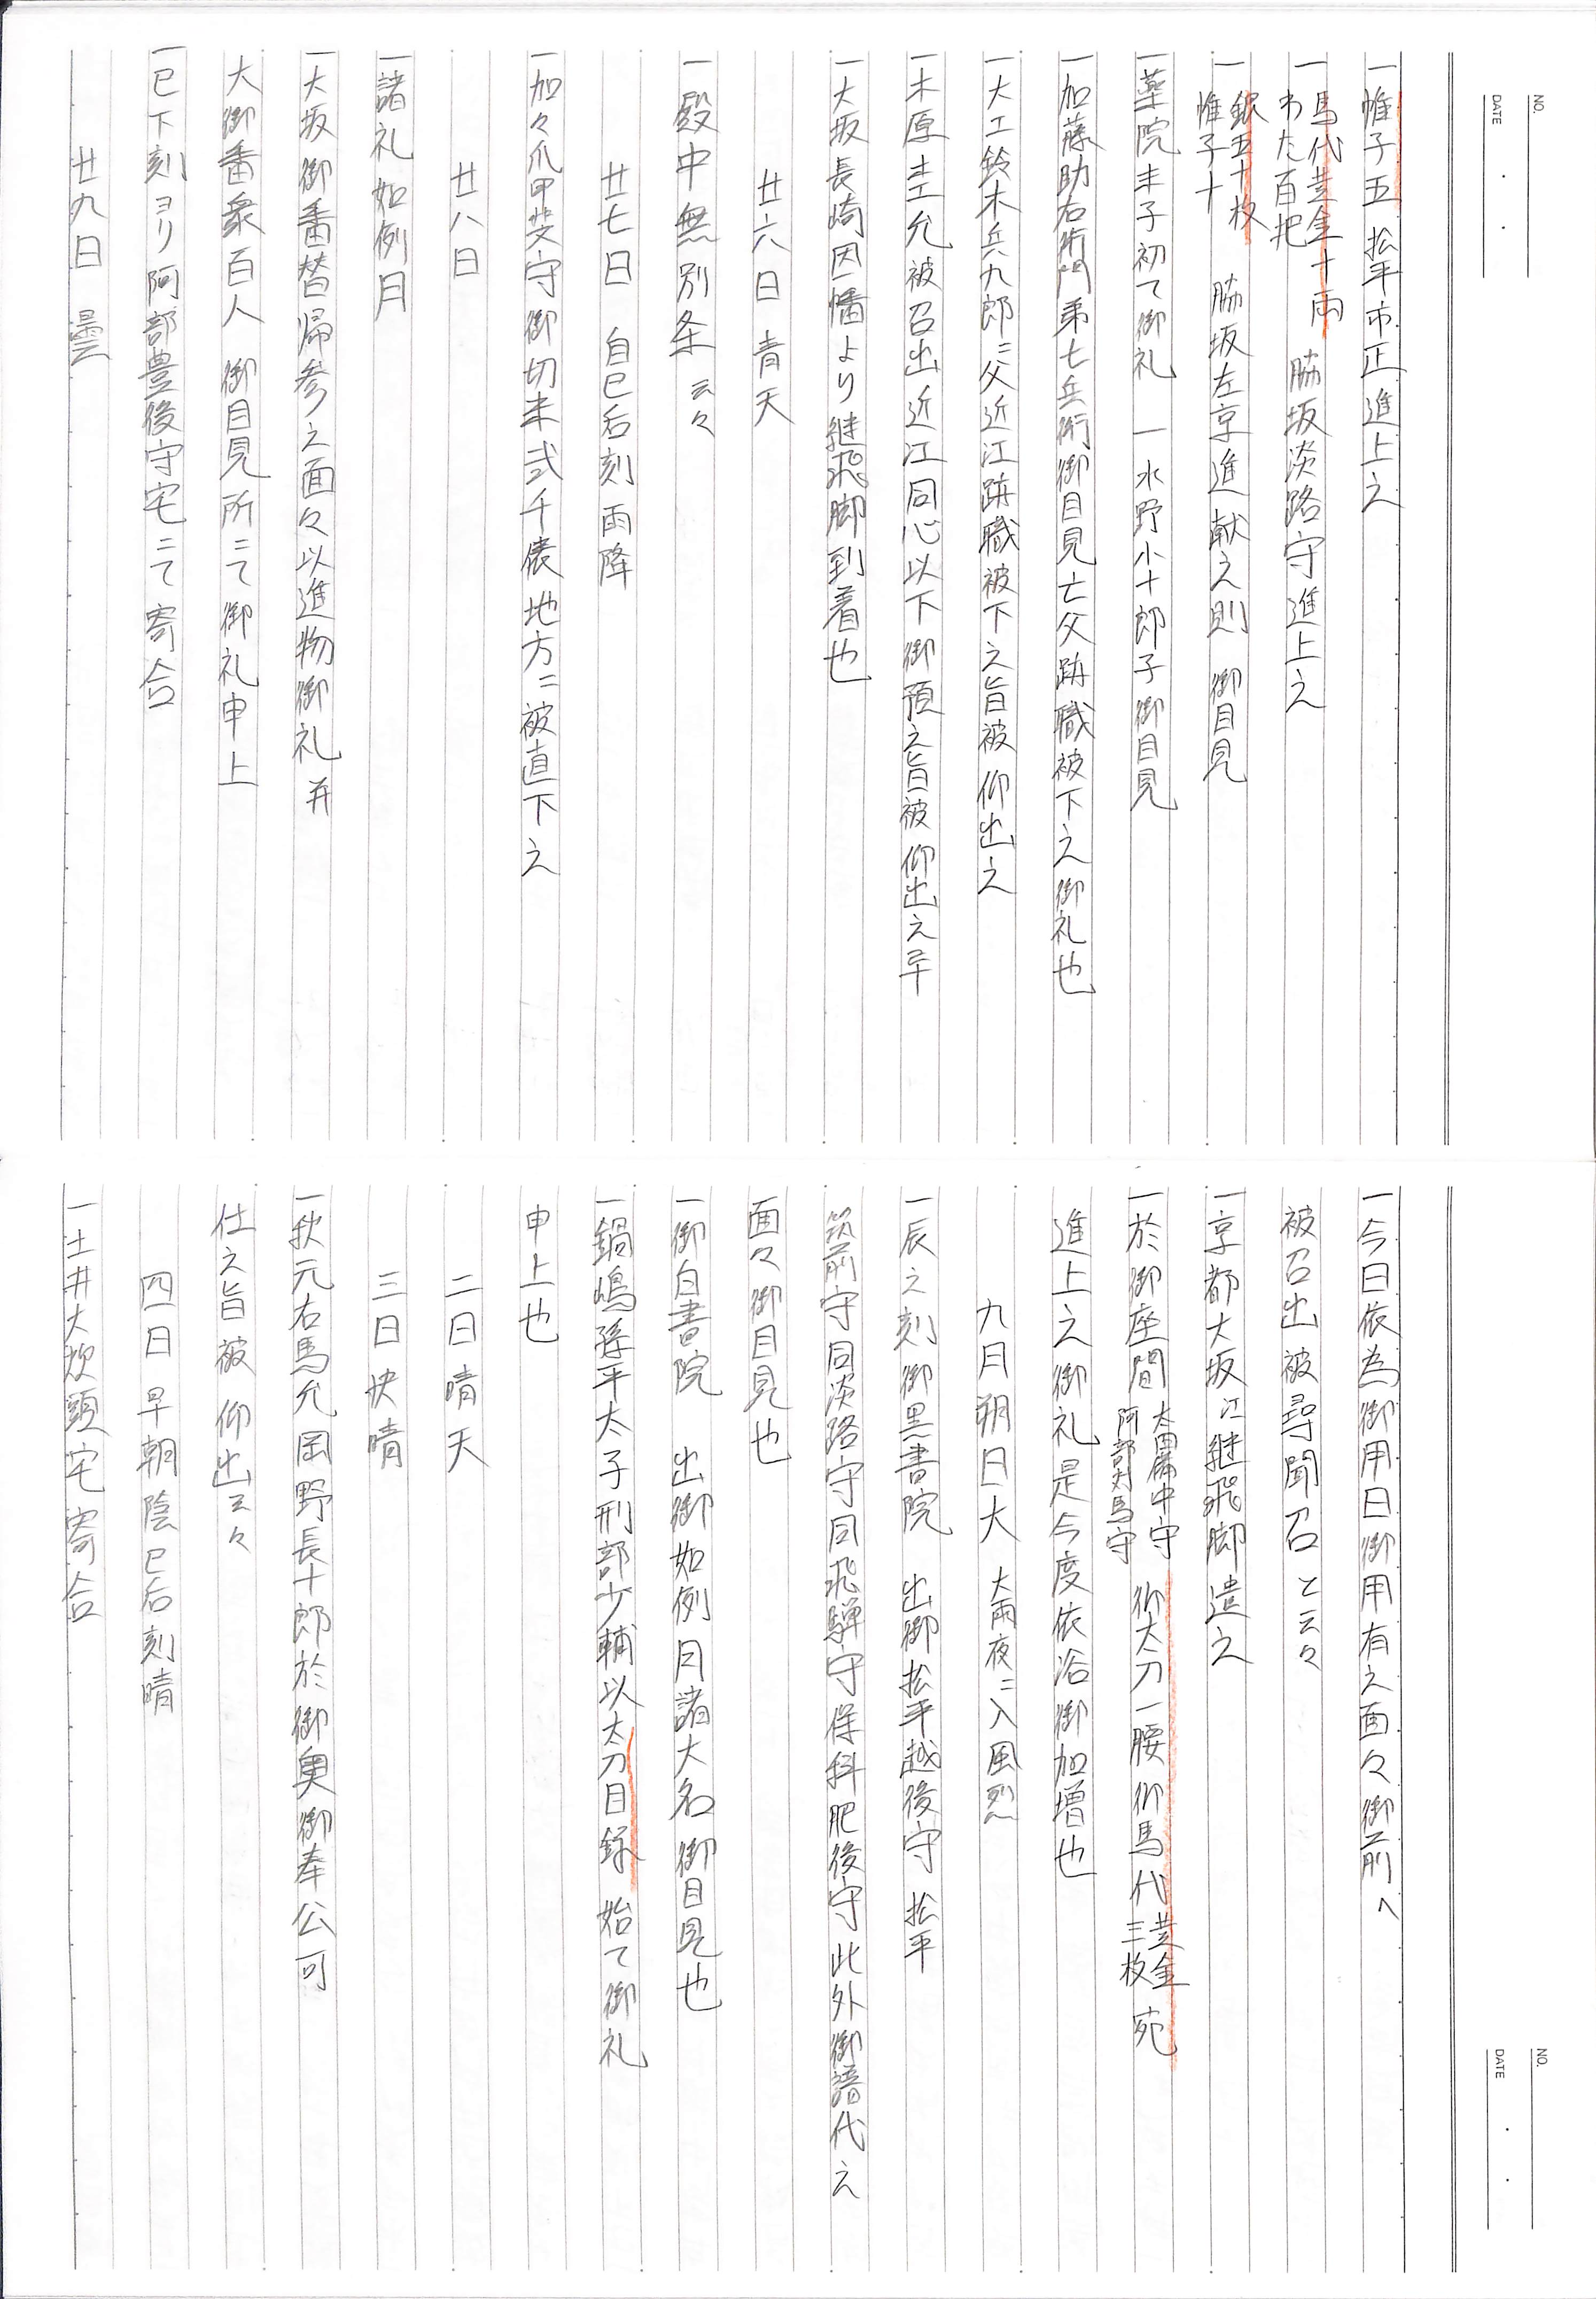 NO.
DATE
一帷子五 松平市正進上之
一馬代黄金十両 わた百把 脇坂淡路守進上之
一銀五十枚 帷子十 脇坂左京進献之則 御目見
一薬院末子初て御礼 一水野小十郎子御目見
一加藤助右衛門弟七兵衛御目見亡父跡職被下之御礼也
一大工鈴木兵九郎ニ父近江跡職被下之旨被 仰出之
一木原杢允被召出近江同心以下御預之旨被 仰出之
一大坂長崎因幡より継飛脚到着也
廿六日 青天
一殿中無別条 云々
廿七日 自巳后刻 雨降
一加々爪甲斐守御切米弐千俵地方ニ被直下之
廿八日
一諸礼如例月
一大坂御番替帰参之面々以進物御礼 并
大御番衆百人 御目見所ニて御礼申上
一巳下刻ヨリ阿部豊後守宅ニて寄合
廿九日 曇
NO.
DATE
一今日依為御用日御用有之面々御前へ
被召出被尋聞召と云々
一京都大坂江継飛脚遣之
一於御座間 太田備中守 阿部対馬守 御太刀一腰御馬代黄金三枚宛
進上之御礼是今度依浴御加増也
九月朔日大 大雨夜ニ入風烈
一辰之刻御黒書院 出御松平越後守 松平
筑前守同淡路守同飛騨守保科肥後守此外御譜代之
面々御目見也
一御白書院 出御如例月諸大名御目見也
一鍋嶋孫平太子刑部少輔以太刀目録 始て御礼
申上也
二日晴天
三日快晴
一秋元右馬允岡野長十郎於御奥御奉公可
仕之旨被 仰出云々
四日早朝陰巳后刻晴
一土井大炊頭宅寄合